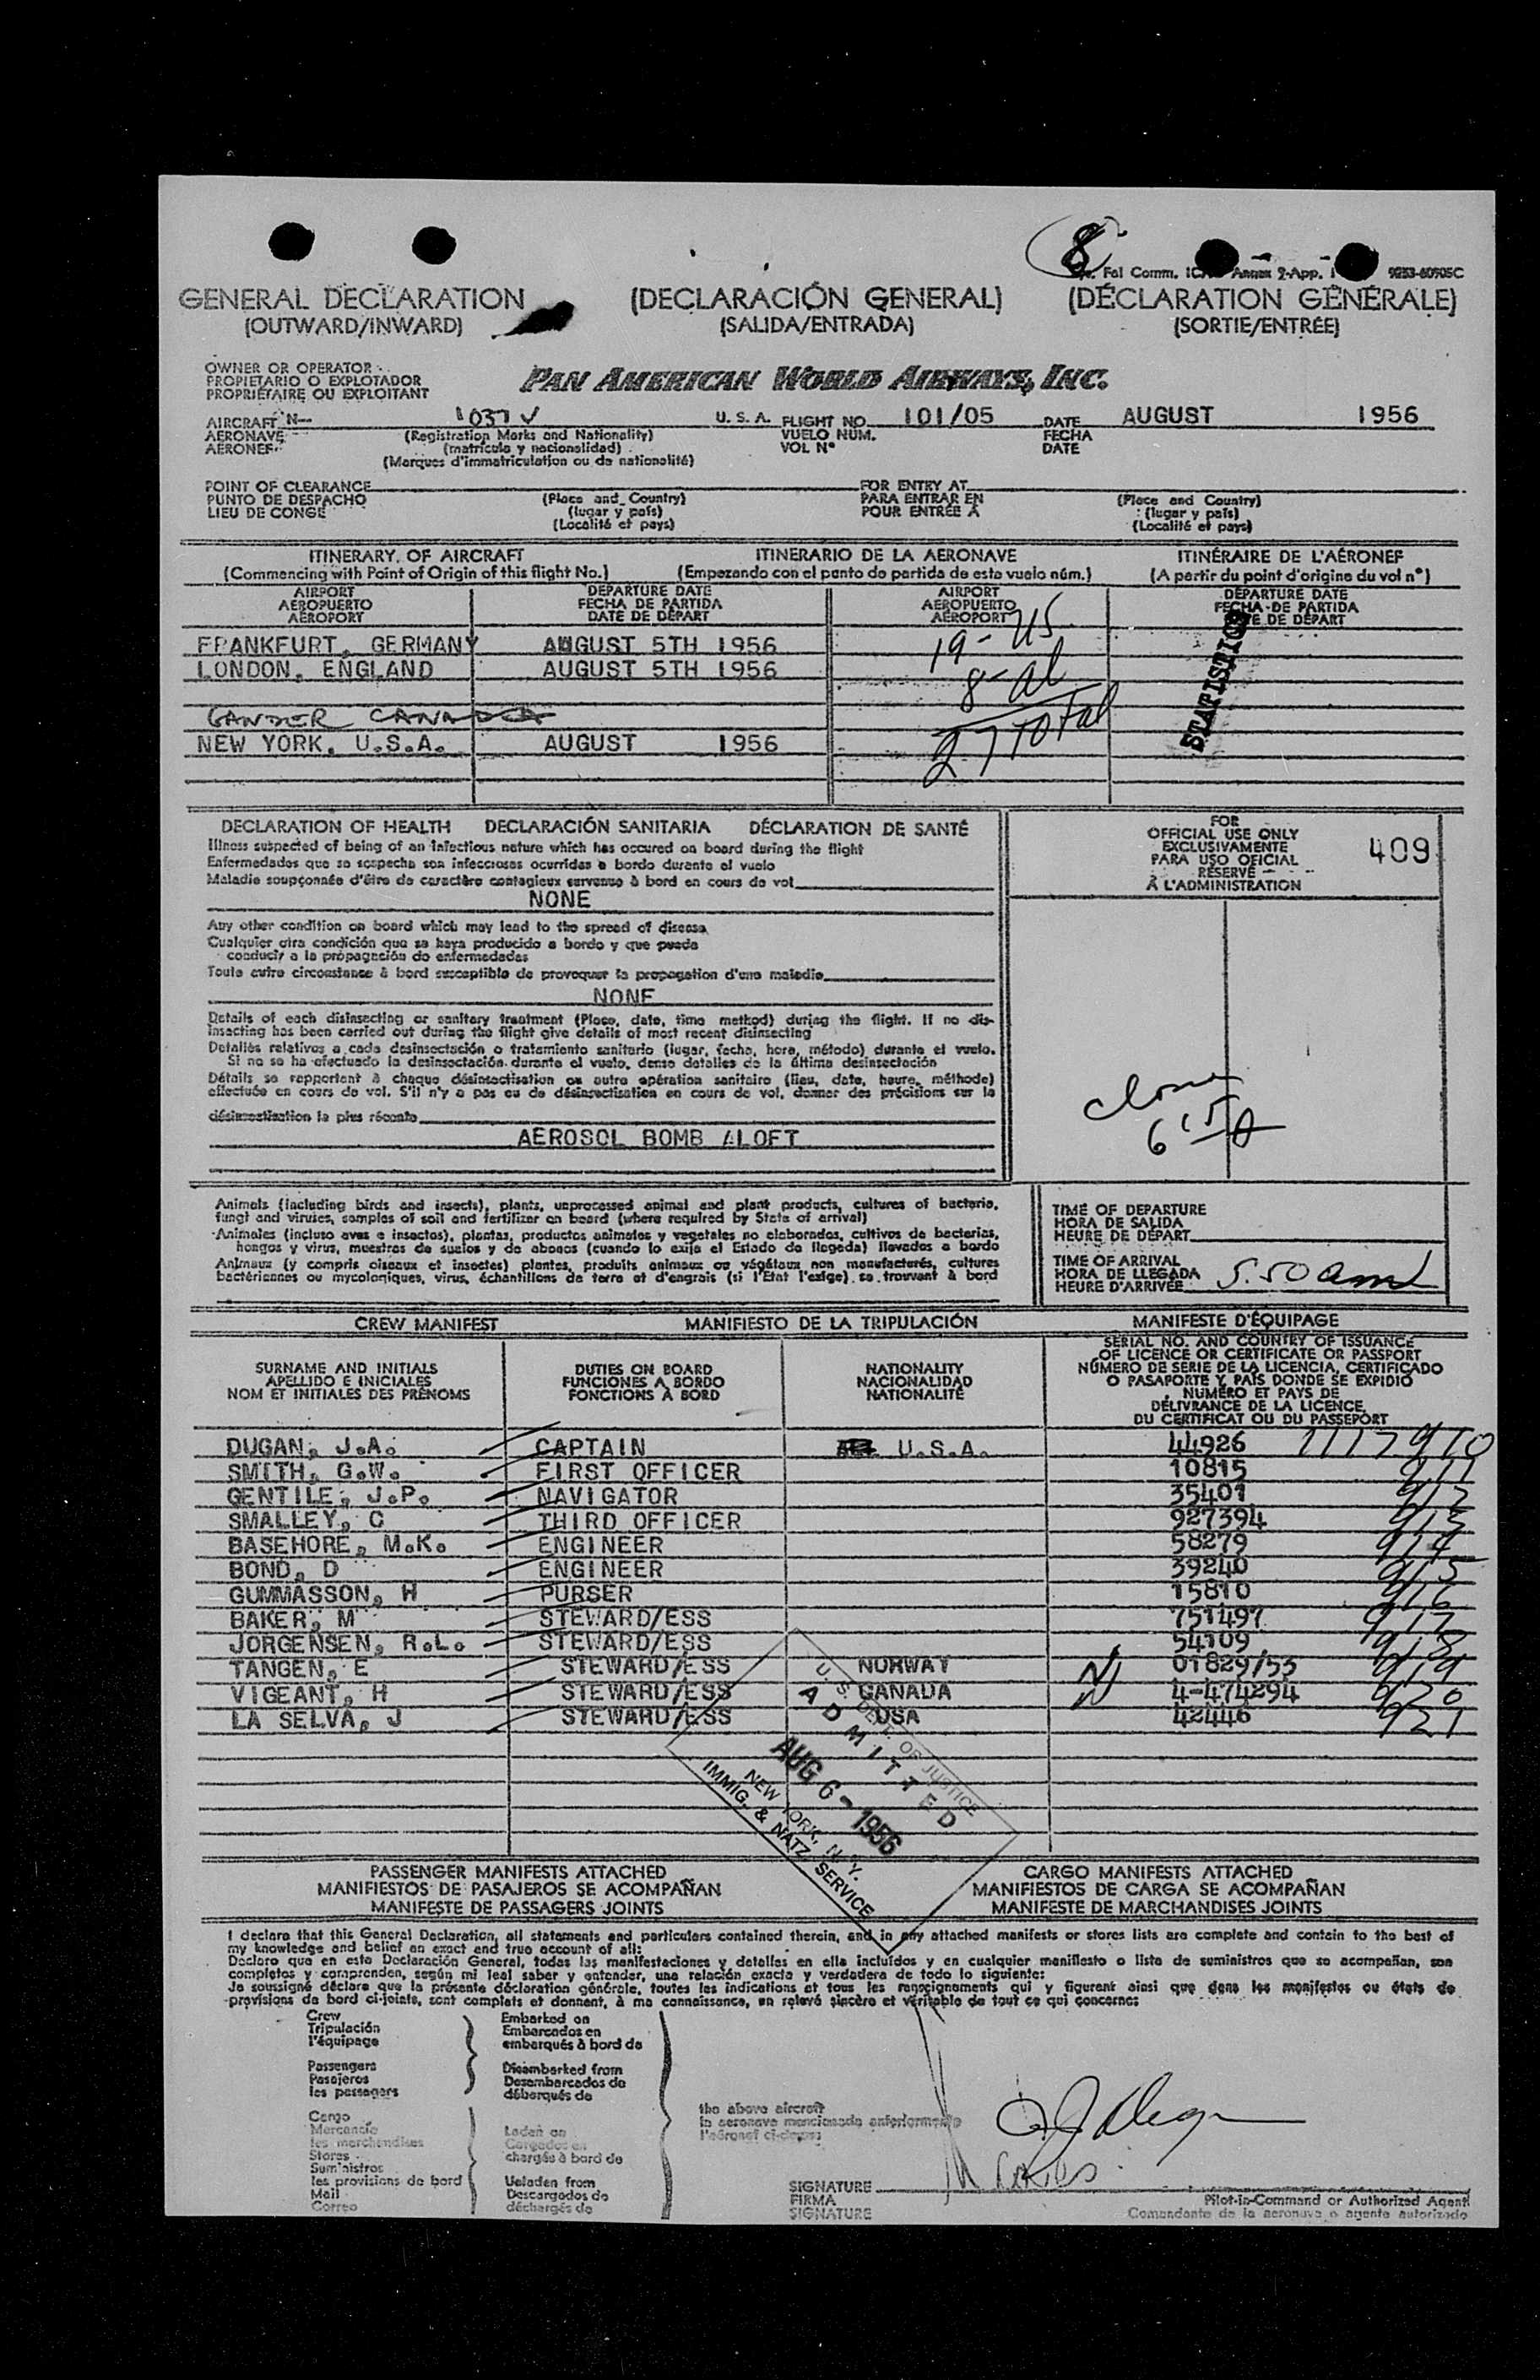 8
Fal Comm. Annex 9-App. 1 9253-60905C
GENERAL DECLARATION (DECLARACIÓN GENERAL) (DÉCLARATION GÉNÉRALE)
(OUTWARD/INWARD) (SALIDA/ENTRADA) (SORTIE/ENTRÉE)
OWNER OR OPERATOR
PROPIETARIO O EXPLOTADOR
PROPRIÉTAIRE OU EXPLOITANT
PAN AMERICAN WORLD AIRWAYS, INC.
AIRCRAFT N- 1037V U. S. A. FLIGHT NO. 101/05 DATE AUGUST 1956
AERONAVE (Registration Marks and Nationality) VUELO NÚM. FECHA
AÉRONEF (matrícula y nacionalidad) VOL Nº DATE
(Marques d'immatriculation ou de nationalité)
POINT OF CLEARANCE FOR ENTRY AT
PUNTO DE DESPACHO (Place and Country) PARA ENTRAR EN (Place and Country)
LIEU DE CONGÉ (lugar y país) POUR ENTRÉE À (lugar y país)
(Localité et pays) (Localité et pays)
ITINERARY OF AIRCRAFT ITINERARIO DE LA AERONAVE ITINÉRAIRE DE L'AÉRONEF
(Commencing with Point of Origin of this flight No.) (Empezando con el punto de partida de este vuelo núm.) (A partir du point d'origine du vol nº)
AIRPORT DEPARTURE DATE AIRPORT DEPARTURE DATE
AEROPUERTO FECHA DE PARTIDA AEROPUERTO FECHA DE PARTIDA
AÉROPORT DATE DE DÉPART AÉROPORT DATE DE DÉPART
FRANKFURT, GERMANY AUGUST 5TH 1956 19- US
LONDON, ENGLAND AUGUST 5TH 1956 8- al
STATISTICS
GANDER CANADA
NEW YORK, U.S.A. AUGUST 1956 27 Total
DECLARATION OF HEALTH DECLARACIÓN SANITARIA DÉCLARATION DE SANTÉ
Illness suspected of being of an infectious nature which has occured on board during the flight
Enfermedades que se sospecha son infecciosas ocurridas a bordo durante el vuelo
Maladie soupçonnée d'être de caractère contagieux survenue à bord en cours de vol
NONE
FOR
OFFICIAL USE ONLY
EXCLUSIVAMENTE
PARA USO OFICIAL
RÉSERVÉ
À L'ADMINISTRATION
409
Any other condition on board which may lead to the spread of disease
Cualquier otra condición que se haya producido a bordo y que pueda
conducir a la propagación de enfermedades
Toute autre circonstance à bord susceptible de provoquer la propagation d'une maladie
NONE
Details of each disinsecting or sanitary treatment (Place, date, time method) during the flight. If no dis-
insecting has been carried out during the flight give details of most recent disinsecting
Detalles relativos a cada desinsectación o tratamiento sanitario (lugar, fecha, hora, método) durante el vuelo.
Si no se ha efectuado la desinsectación durante el vuelo, dense detalles de la última desinsectación
Détails se rapportant à chaque désinsectisation ou autre opération sanitaire (lieu, date, heure, méthode)
effectuée en cours de vol. S'il n'y a pas eu de désinsectisation en cours de vol, donner des précisions sur la
désinsectisation la plus récente
AEROSOL BOMB ALOFT
615A
Animals (including birds and insects), plants, unprocessed animal and plant products, cultures of bacteria,
fungi and viruses, samples of soil and fertilizer on board (where required by State of arrival)
Animales (incluso aves e insectos), plantas, productos animales y vegetales no elaborados, cultivos de bacterias,
hongos y virus, muestras de suelos y de abonos (cuando lo exija el Estado de llegada) llevados a bordo
Animaux (y compris oiseaux et insectes) plantes, produits animaux ou végétaux non manufacturés, cultures
bactériennes ou mycologiques, virus, échantillons de terre et d'engrais (si l'Etat l'exige) se trouvant à bord
TIME OF DEPARTURE
HORA DE SALIDA
HEURE DE DÉPART
TIME OF ARRIVAL
HORA DE LLEGADA 5.50 am
HEURE D'ARRIVÉE
CREW MANIFEST MANIFIESTO DE LA TRIPULACIÓN MANIFESTE D'ÉQUIPAGE
SURNAME AND INITIALS DUTIES ON BOARD NATIONALITY
APELLIDO E INICIALES FUNCIONES A BORDO NACIONALIDAD
NOM ET INITIALES DES PRÉNOMS FONCTIONS À BORD NATIONALITÉ
SERIAL NO. AND COUNTRY OF ISSUANCE
OF LICENCE OR CERTIFICATE OR PASSPORT
NÚMERO DE SERIE DE LA LICENCIA, CERTIFICADO
O PASAPORTE Y PAÍS DONDE SE EXPIDIÓ
NUMÉRO ET PAYS DE
DÉLIVRANCE DE LA LICENCE,
DU CERTIFICAT OU DU PASSEPORT
DUGAN, J.A. CAPTAIN U.S.A. 44926 1117910
SMITH, G.W. FIRST OFFICER 10815 911
GENTILE, J.P. NAVIGATOR 35401 912
SMALLEY, C THIRD OFFICER 927394 913
BASEHORE, M.K. ENGINEER 58279 914
BOND, D ENGINEER 39240 915
GUMMASSON, H PURSER 15810 916
BAKER, M STEWARD/ESS 751497 917
JORGENSEN, R.L. STEWARD/ESS 54109 918
TANGEN, E STEWARD/ESS NORWAY 01829/53 919
VIGEANT, H STEWARD/ESS CANADA 4-474294 920
LA SELVA, J STEWARD/ESS USA 42446 921
U. S. DEPT. OF JUSTICE
ADMITTED
AUG 6- 1956
NEW YORK, N.Y.
IMMIG. & NATZ. SERVICE
PASSENGER MANIFESTS ATTACHED CARGO MANIFESTS ATTACHED
MANIFIESTOS DE PASAJEROS SE ACOMPAÑAN MANIFIESTOS DE CARGA SE ACOMPAÑAN
MANIFESTE DE PASSAGERS JOINTS MANIFESTE DE MARCHANDISES JOINTS
I declare that this General Declaration, all statements and particulars contained therein, and in any attached manifests or stores lists are complete and contain to the best of
my knowledge and belief an exact and true account of all:
Declaro que en esta Declaración General, todas las manifestaciones y detalles en ella incluídos y en cualquier manifiesto o lista de suministros que se acompañan, son
completos y comprenden, según mi leal saber y entender, una relación exacta y verdadera de todo lo siguiente:
Je soussigné déclare que la présente déclaration générale, toutes les indications et tous les renseignements qui y figurent ainsi que dans les manifestes ou états de
provisions de bord ci-joints, sont complets et donnent, à ma connaissance, un relevé sincère et véritable de tout ce qui concerne:
Crew Embarked on
Tripulación Embarcados en
l'équipage embarqués à bord de
Passengers Disembarked from
Pasajeros Desembarcados de
les passagers débarqués de
Cargo
Mercancía Laden on
les marchandises Cargados en
Stores chargés à bord de
Suministros
les provisions de bord Unladen from
Mail Descargados de
Correo déchargés de
the above aircraft
la aeronave mencionada anteriormente
l'aéronef ci-dessus
SIGNATURE
FIRMA Pilot-in-Command or Authorized Agent
SIGNATURE Comandante de la aeronave o agente autorizado